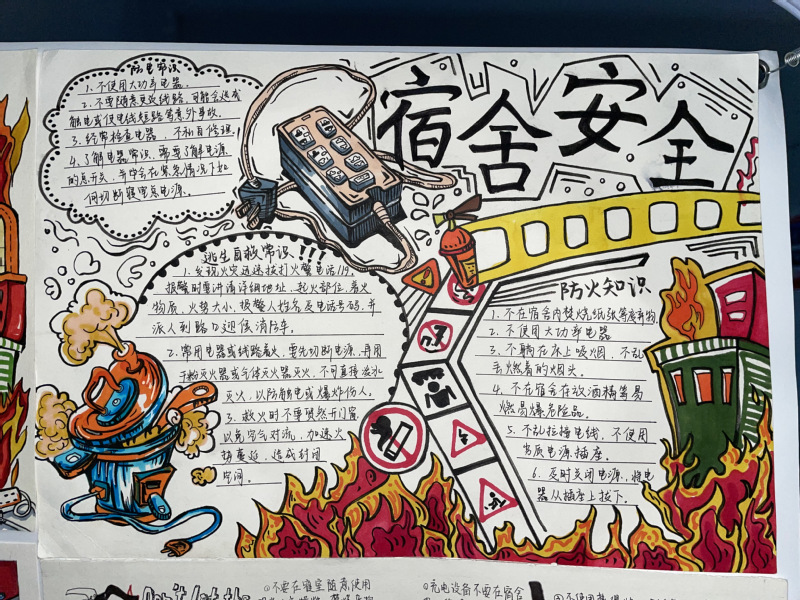 宿舍安全
防电常识
1. 不使用大功率电器。
2. 不要随意更改线路,可能会造成
触电或使电线短路等意外事故。
3. 经常检查电器,不私自修理。
4. 了解电器常识,需要了解电源
的总开关,并学会在紧急情况下如
何切断寝室总电源。
逃生自救常识!!!
1. 发现火灾迅速拨打火警电话119。
报警时要讲清详细地址、起火部位、着火
物质、火势大小、报警人姓名及电话号码,并
派人到路口迎候消防车。
2. 常用电器或线路着火,要先切断电源,再用
干粉灭火器或气体灭火器灭火,不可直接泼水
灭火,以防触电或爆炸伤人。
3. 救火时不要贸然开门窗
以免空气对流,加速火
势蔓延,造成封闭
空间。
防火知识
1. 不在宿舍内焚烧纸张等废弃物。
2. 不使用大功率电器
3. 不躺在床上吸烟,不乱
丢燃着的烟头。
4. 不在宿舍存放酒精等易
燃易爆危险品。
5. 不乱拉接电线,不使用
劣质电源、插座。
6. 及时关闭电源,将电
器从插座上拔下。
①不要在寝室随意使用
②充电设备不要在宿舍